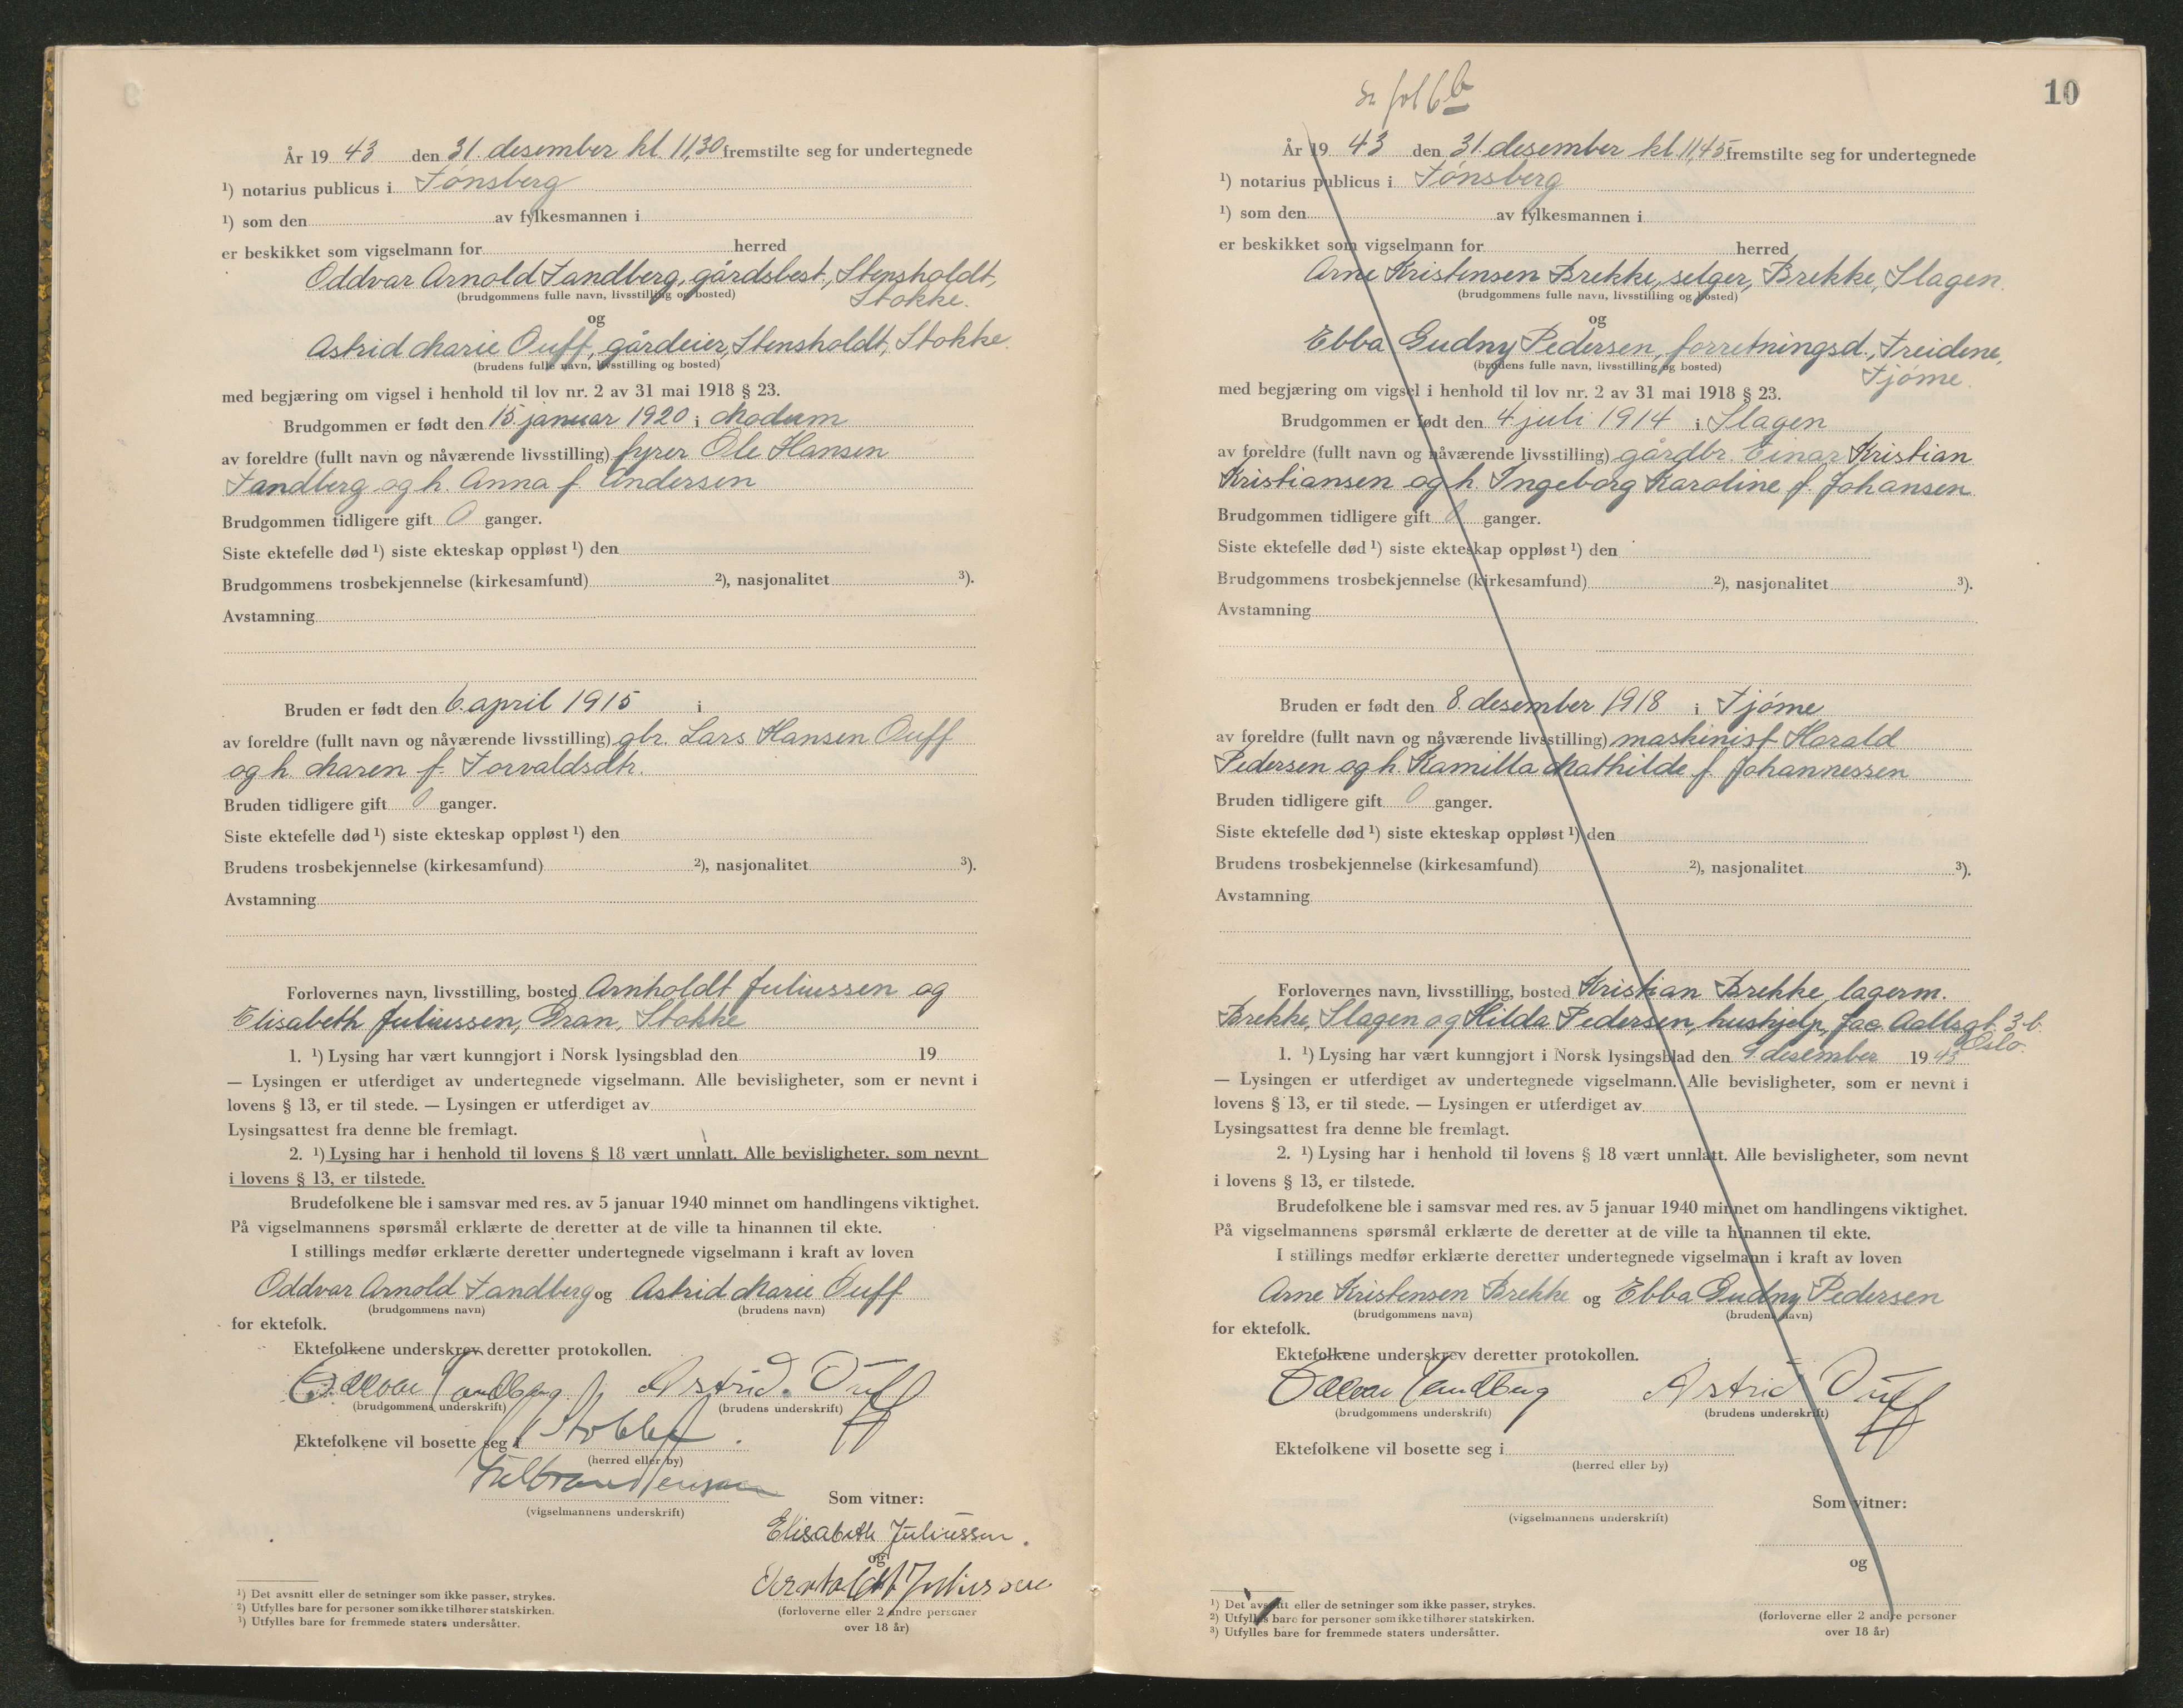 År 19 43 den 31. desember kl. 11,30 fremstilte seg for undertegnede
¹) notarius publicus i Tønsberg
¹) som den av fylkesmannen i
er beskikket som vigselmann for herred
Oddvar Arnold Tandberg, gårdsbest., Stensholdt,
(brudgommens fulle navn, livsstilling og bosted) Stokke.
og
Astrid Marie Ouff, gårdeier, Stensholdt, Stokke.
(brudens fulle navn, livsstilling og bosted)
med begjæring om vigsel i henhold til lov nr. 2 av 31 mai 1918 § 23.
Brudgommen er født den 15. januar 1920 i Modum
av foreldre (fullt navn og nåværende livsstilling) fyrer Ole Hansen
Tandberg og h. Anna f. Andersen
Brudgommen tidligere gift 0 ganger.
Siste ektefelle død ¹) siste ekteskap oppløst ¹) den
Brudgommens trosbekjennelse (kirkesamfund) ²), nasjonalitet ³).
Avstamning
Bruden er født den 6. april 1915 i
av foreldre (fullt navn og nåværende livsstilling) gbr. Lars Hansen Ouff
og h. Maren f. Torvaldsdtr.
Bruden tidligere gift 0 ganger.
Siste ektefelle død ¹) siste ekteskap oppløst ¹) den
Brudens trosbekjennelse (kirkesamfund) ²), nasjonalitet ³).
Avstamning
Forlovernes navn, livsstilling, bosted Arnholdt Juliussen og
Elisabeth Juliussen, Gran, Stokke
1. ¹) Lysing har vært kunngjort i Norsk lysingsblad den 19
— Lysingen er utferdiget av undertegnede vigselmann. Alle bevisligheter, som er nevnt i
lovens § 13, er til stede. — Lysingen er utferdiget av
Lysingsattest fra denne ble fremlagt.
2. ¹) Lysing har i henhold til lovens § 18 vært unnlatt. Alle bevisligheter, som nevnt
i lovens § 13, er tilstede.
Brudefolkene ble i samsvar med res. av 5 januar 1940 minnet om handlingens viktighet.
På vigselmannens spørsmål erklærte de deretter at de ville ta hinannen til ekte.
I stillings medfør erklærte deretter undertegnede vigselmann i kraft av loven
Oddvar Arnold Tandberg og Astrid Marie Ouff
(brudgommens navn) (brudens navn)
for ektefolk.
Ektefolkene underskrev deretter protokollen.
Oddvar Tandberg Astrid Ouff
(brudgommens underskrift) (brudens underskrift)
Ektefolkene vil bosette seg i Stokke.
(herred eller by)
(vigselmannens underskrift)
Som vitner:
Elisabeth Juliussen.
og
Arnholdt Juliussen
(forloverne eller 2 andre personer
over 18 år)
¹) Det avsnitt eller de setninger som ikke passer, strykes.
²) Utfylles bare for personer som ikke tilhører statskirken.
³) Utfylles bare for fremmede staters undersåtter.
10
se fol 6 b
År 19 43 den 31. desember kl. 11,45 fremstilte seg for undertegnede
¹) notarius publicus i Tønsberg
¹) som den av fylkesmannen i
er beskikket som vigselmann for herred
Arne Kristensen Brekke, selger, Brekke, Slagen.
(brudgommens fulle navn, livsstilling og bosted)
og
Ebba Gudny Pedersen, forretningsd., Treidene,
(brudens fulle navn, livsstilling og bosted) Tjøme.
med begjæring om vigsel i henhold til lov nr. 2 av 31 mai 1918 § 23.
Brudgommen er født den 4 juli 1914 i Slagen
av foreldre (fullt navn og nåværende livsstilling) gårdbr. Einar Kristian
Kristiansen og h. Ingeborg Karoline f. Johansen
Brudgommen tidligere gift 0 ganger.
Siste ektefelle død ¹) siste ekteskap oppløst ¹) den
Brudgommens trosbekjennelse (kirkesamfund) ²), nasjonalitet ³).
Avstamning
Bruden er født den 8. desember 1918 i Tjøme
av foreldre (fullt navn og nåværende livsstilling) maskinist Harald
Pedersen og h. Kamilla Mathilde f. Johannessen
Bruden tidligere gift 0 ganger.
Siste ektefelle død ¹) siste ekteskap oppløst ¹) den
Brudens trosbekjennelse (kirkesamfund) ²), nasjonalitet ³).
Avstamning
Forlovernes navn, livsstilling, bosted Kristian Brekke, lagerm.
Brekke, Slagen og Hilda Pedersen, hushjelp, Jac. Aallsgt. 3 b.
Oslo.
1. ¹) Lysing har vært kunngjort i Norsk lysingsblad den 9. desember 19 43
— Lysingen er utferdiget av undertegnede vigselmann. Alle bevisligheter, som er nevnt i
lovens § 13, er til stede. — Lysingen er utferdiget av
Lysingsattest fra denne ble fremlagt.
2. ¹) Lysing har i henhold til lovens § 18 vært unnlatt. Alle bevisligheter, som nevnt
i lovens § 13, er tilstede.
Brudefolkene ble i samsvar med res. av 5 januar 1940 minnet om handlingens viktighet.
På vigselmannens spørsmål erklærte de deretter at de ville ta hinannen til ekte.
I stillings medfør erklærte deretter undertegnede vigselmann i kraft av loven
Arne Kristensen Brekke og Ebba Gudny Pedersen
(brudgommens navn) (brudens navn)
for ektefolk.
Ektefolkene underskrev deretter protokollen.
Oddvar Tandberg Astrid Ouff
(brudgommens underskrift) (brudens underskrift)
Ektefolkene vil bosette seg i
(herred eller by)
(vigselmannens underskrift)
Som vitner:
og
(forloverne eller 2 andre personer
over 18 år)
¹) Det avsnitt eller de setninger som ikke passer, strykes.
²) Utfylles bare for personer som ikke tilhører statskirken.
³) Utfylles bare for fremmede staters undersåtter.